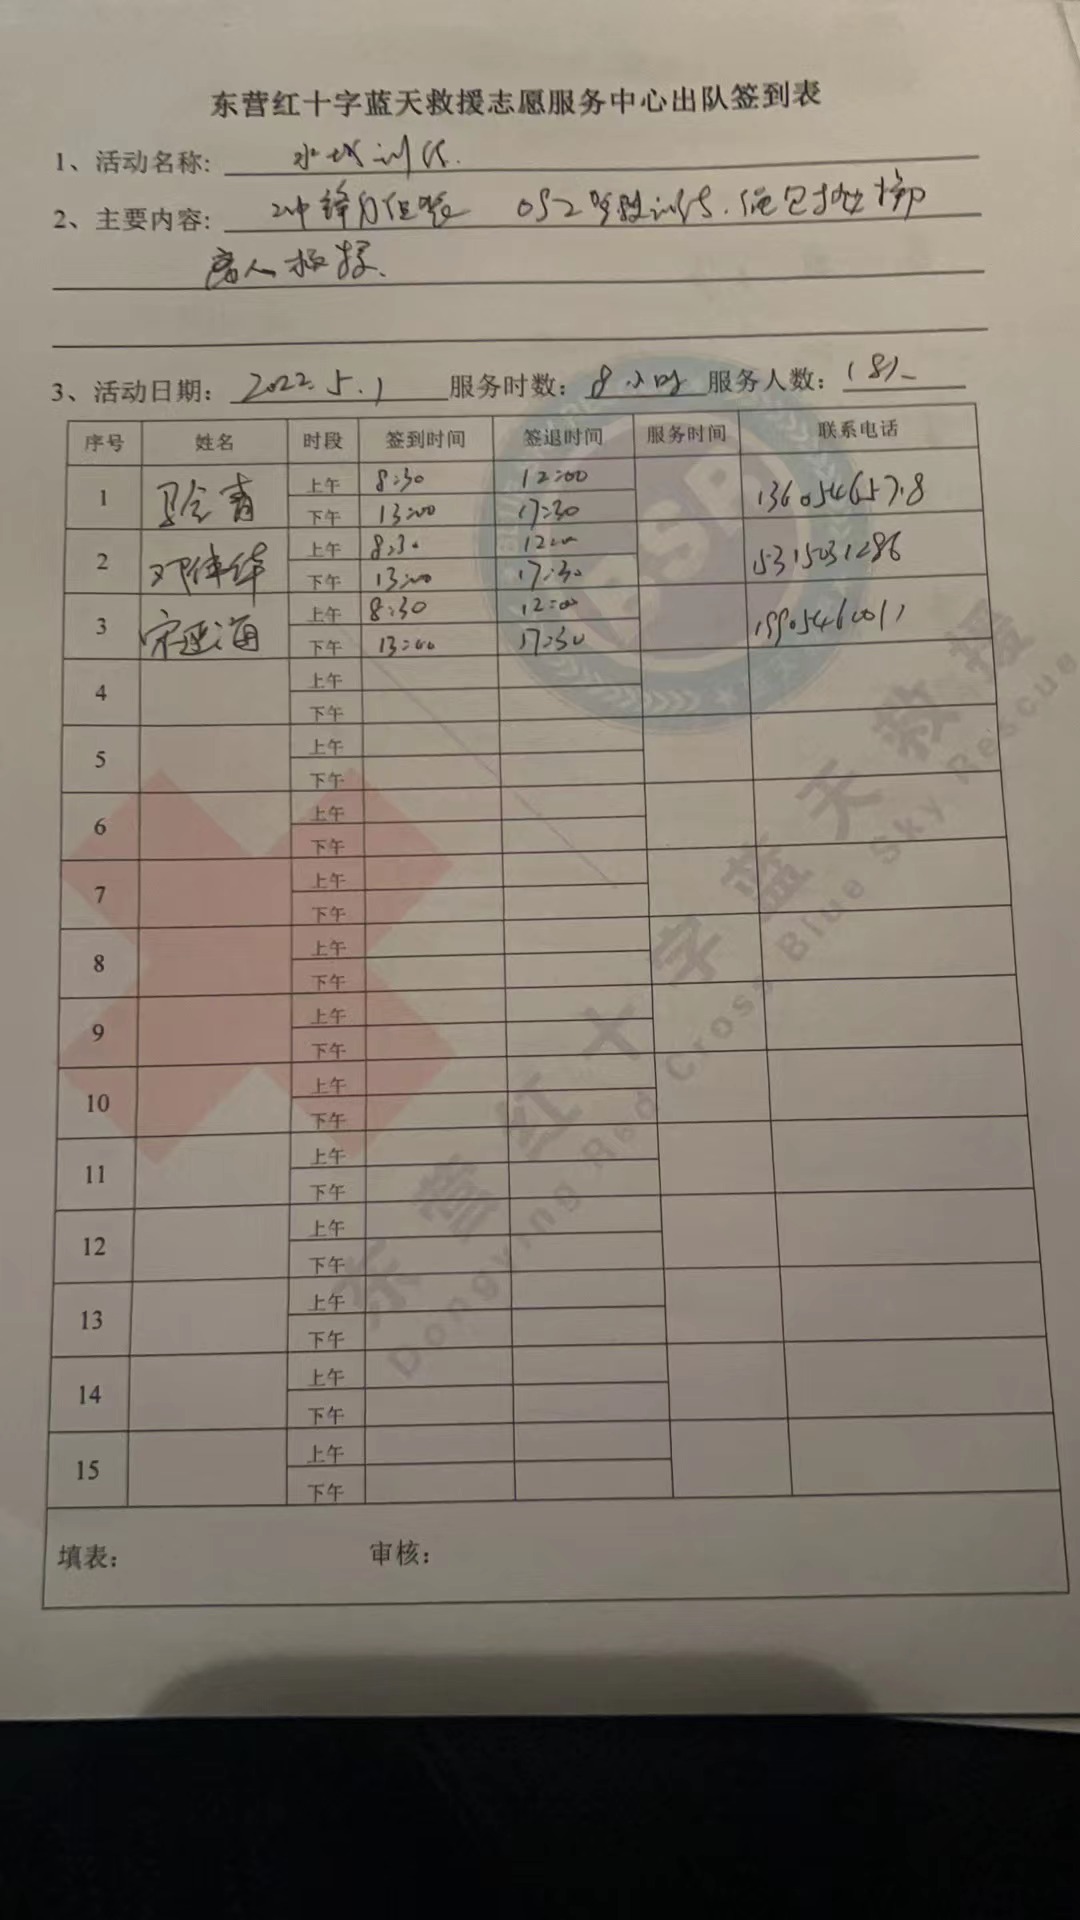 东营红十字蓝天救援志愿服务中心出队签到表
1、活动名称: 水域训练.
2、主要内容: 冲锋舟组装 训练.绳包抛掷
救援.
3、活动日期: 2022.5.1 服务时数: 8小时 服务人数: 18人
序号 姓名 时段 签到时间 签退时间 服务时间 联系电话
1 上午 8:30 12:00
下午 13:00 17:30
2 邓伟华 上午 8:30 12:00 15315031286
下午 13:00 17:30
3 宋延海 上午 8:30 12:00
下午 13:00 17:30
4 上午
下午
5 上午
下午
6 上午
下午
7 上午
下午
8 上午
下午
9 上午
下午
10 上午
下午
11 上午
下午
12 上午
下午
13 上午
下午
14 上午
下午
15 上午
下午
填表: 审核:
东营红十字蓝天救援
Dongying Red Cross Blue Sky Rescue
BSR